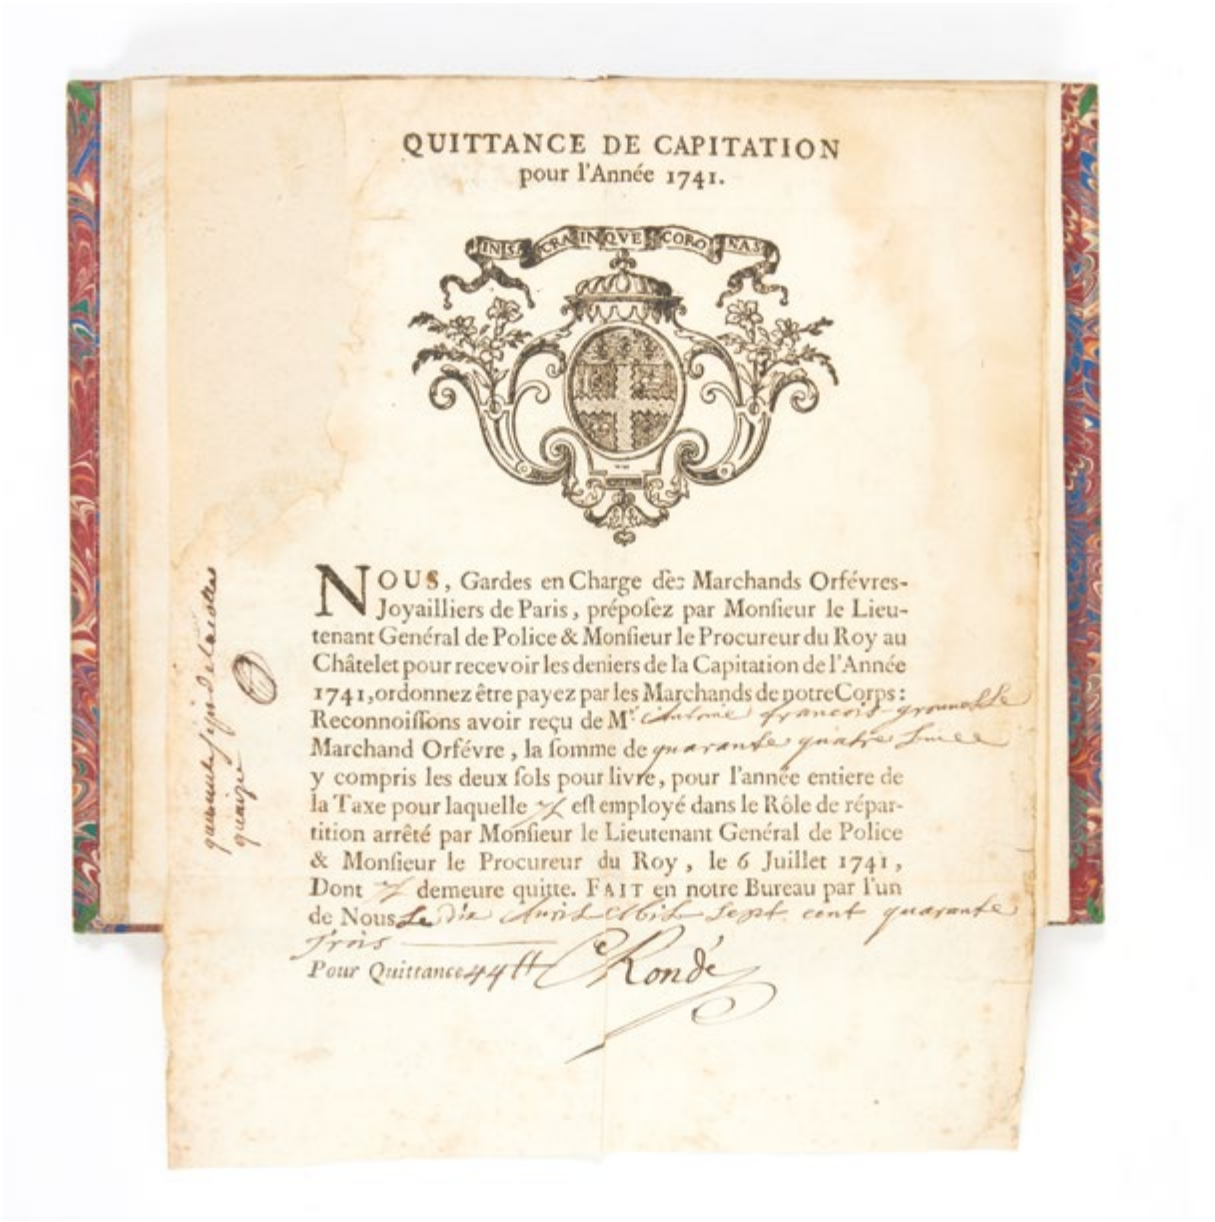 QUITTANCE DE CAPITATION
pour l'Année 1741.
IN SACRA INQVE CORONAS
NOUS, Gardes en Charge des Marchands Orfévres-
Joyailliers de Paris, préposez par Monsieur le Lieu-
tenant Général de Police & Monsieur le Procureur du Roy au
Châtelet pour recevoir les deniers de la Capitation de l'Année
1741, ordonnez être payez par les Marchands de notre Corps:
Reconnoissons avoir reçu de Mr. Antoine francois
Marchand Orfévre, la somme de quarante quatre
y compris les deux sols pour livre, pour l'année entiere de
la Taxe pour laquelle il est employé dans le Rôle de répar-
tition arrêté par Monsieur le Lieutenant Général de Police
& Monsieur le Procureur du Roy, le 6 Juillet 1741,
Dont il demeure quitte. FAIT en notre Bureau par l'un
de Nous Le dix Avril Mil Sept cent quarante
trois
Pour Quittance 44 lt Rondé